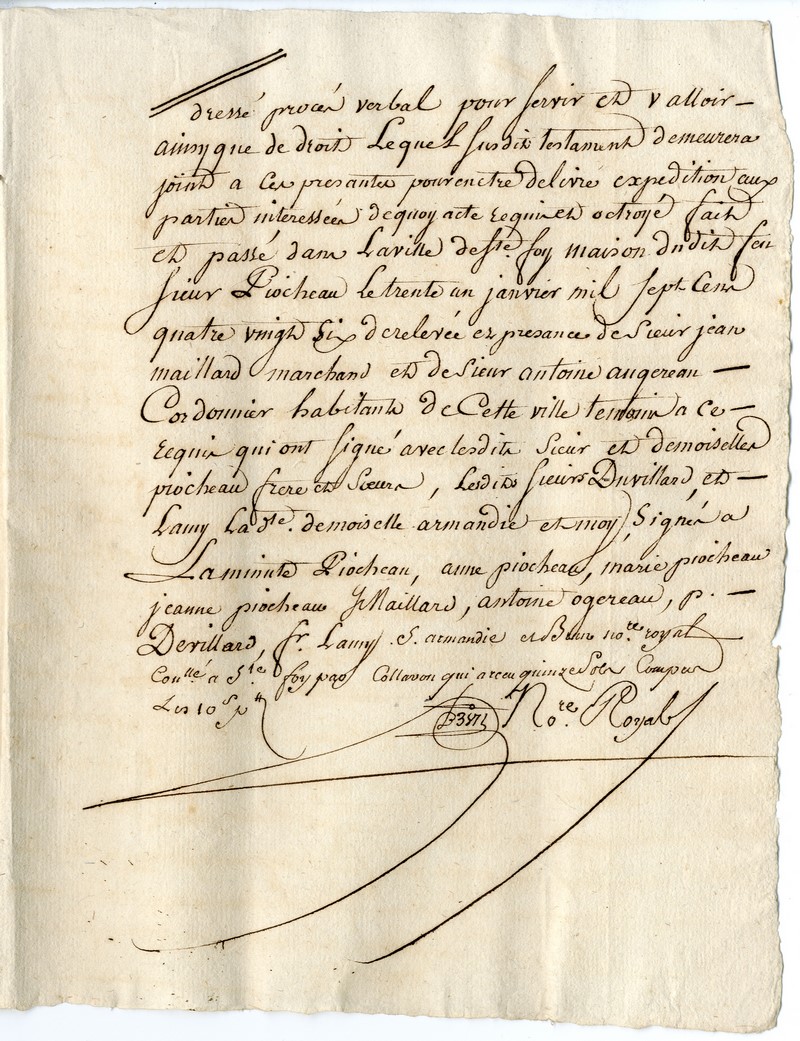 dressé procés verbal pour servir et valloir
ainsy que de droit Lequel susdit testament demeurera
joint a ces presantes pour en etre delivré expedition aux
parties interessées de quoy acte requis et octroyé fait
et passé dans La ville de Ste. foy maison dudit feu
sieur Piocheau Le trente un janvier mil sept Cens
quatre vingt Six de relevée ez presance de Sieur jean
maillard marchand et de Sieur antoine augereau
Cordonnier habitants de Cette ville temoins a ce
requis qui ont signé avec lesdits Sieur et demoiselles
piocheau frere et Sœurs, Lesdits sieurs Duvillard, et
Lamy La dte. demoiselle armandie et moy Signés a
La minute Piocheau, anne piocheau, marie piocheau
jeanne piocheau Maillard, antoine ogereau, p.
Devillard, fr. Lamy. S. armandie et nore. royal
Conllé a Ste foy par Collavon qui a receu quinze Sols Compris
Les 10 S. p. tt
Nore. Royal